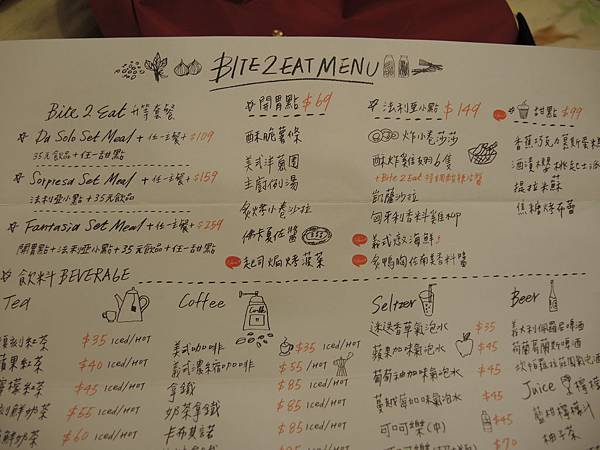 BITE2EAT MENU
Bite 2 Eat 升等套餐
Da Solo Set Meal + 任一主餐 + $109
35元飲品 + 任一甜點
Sorpresa Set Meal + 任一主餐 + $159
法利亞小點 + 35元飲品
Fantasia Set Meal + 任一主餐 + $259
開胃點 + 法利亞小點 + 35元飲品 + 任一甜點
開胃點 $69
酥脆薯條
美式洋蔥圈
主廚例湯
炙烤小卷沙拉
佛卡夏佐醬
起司焗烤菠菜
法利亞小點 $149
炸小卷莎莎
酥炸雞翅 6隻
凱薩沙拉
匈牙利香料雞柳
義式燉海鮮
甜點 $99
香蕉巧克力慕斯蛋糕
酒漬櫻桃起士派
提拉米蘇
焦糖烤布蕾
飲料 BEVERAGE
Tea
紅茶 $35 Iced/HOT
蘋果紅茶 $40 Iced/HOT
檸檬紅茶 $45 Iced/HOT
鮮奶茶 $55 Iced/HOT
鮮奶茶 $60 Iced/HOT
Coffee
美式咖啡 $35 Iced/HOT
美式濃縮咖啡 $55 HOT
拿鐵 $85 Iced/HOT
奶茶拿鐵 $85 Iced/HOT
卡布其諾 $85 Iced/HOT
Seltzer
迷迭香草氣泡水 $35
蘋果加味氣泡水 $45
葡萄柚加味氣泡水 $45
蔓越莓加味氣泡水 $45
可口可樂(中) $45
$70
Beer
義大利佩羅尼啤酒
荷蘭葛蘭斯啤酒
Juice
藍柑檸檬汁
柚子茶